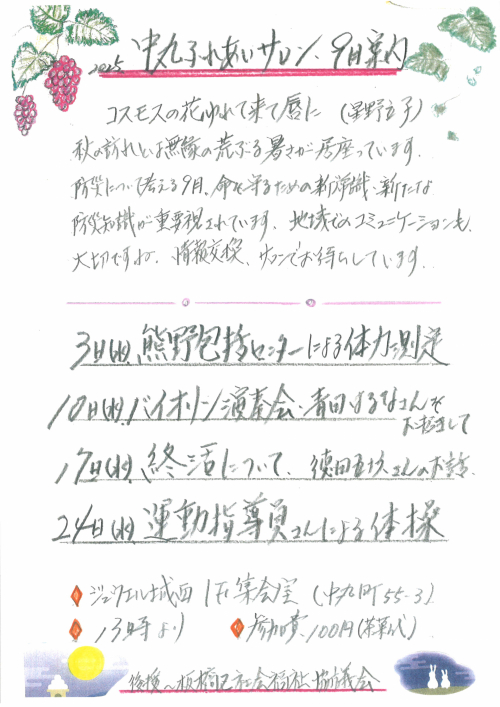 2025 中丸ふれあいサロン、9月案内
コスモスの花ゆれて来て唇に (星野立子)
秋の訪れとは無縁の荒ぶる暑さが居座っています。
防災について考える9月、命を守るための新常識、新たな
防災知識が重要視されています。地域でのコミュニケーションも、
大切ですね。情報交換、サロンでお待ちしています。
3日(水)、熊野包括センターによる体力測定
10日(水)、バイオリン演奏会、青田はるなさんを
お招きして
17日(水)、終活について、徳田さんのお話
24日(水)、運動指導員さんによる体操
ジュウエル城西 1F集会室 (中丸町55-3)
13時より 参加費、100円(茶菓代)
後援〜板橋区社会福祉協議会